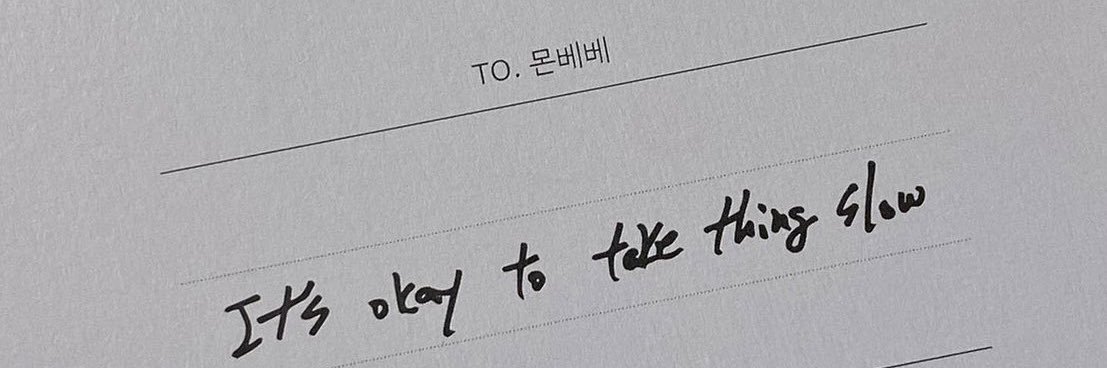 TO. 몬베베
It's okay to take thing slow